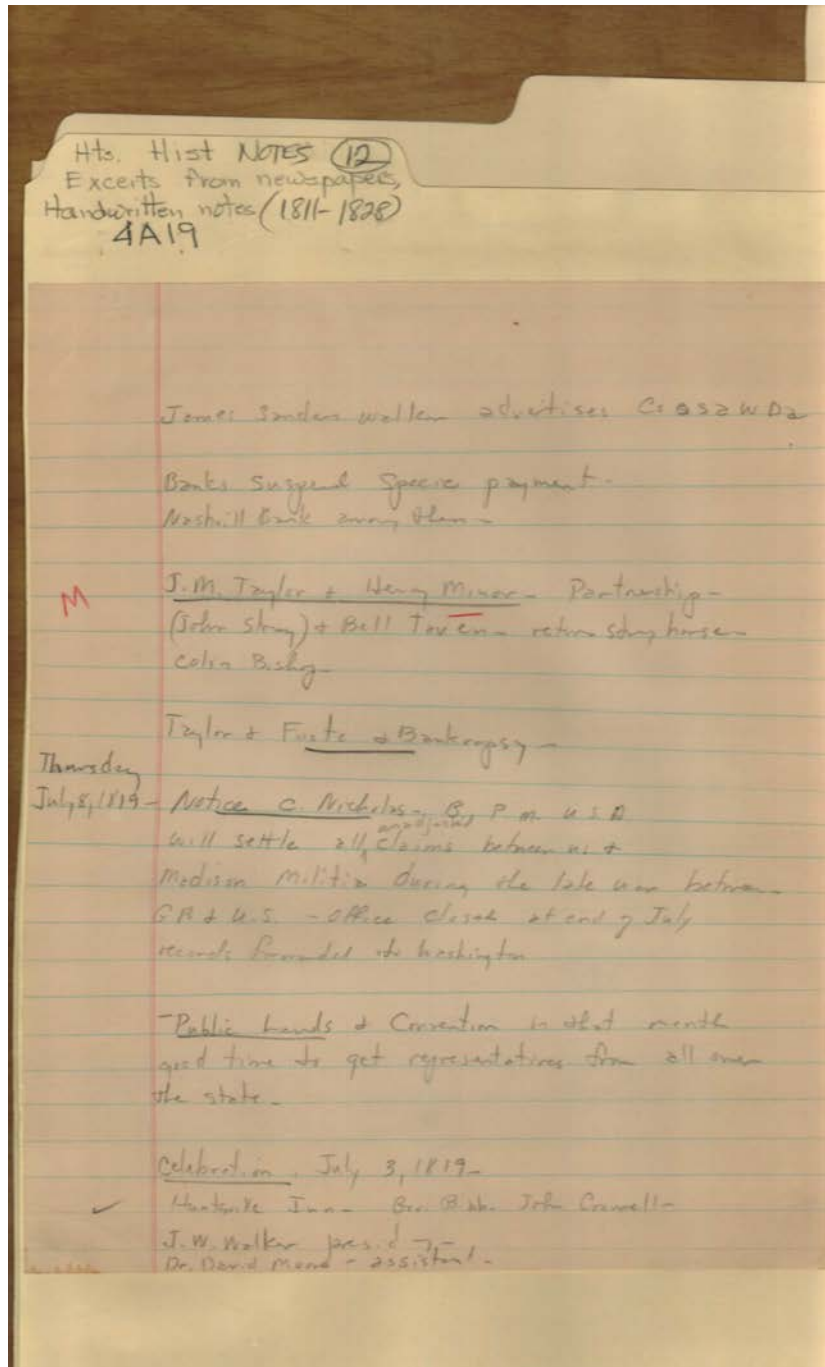 Hts. Hist NOTES 12
Excerts from newspapers,
Handwritten notes (1811-1828)
4A19
James Sanders Walker advertises
Banks Suspend Specie payment -
Nashvill Bank among them -
M
J. M. Taylor & Henry Minor - Partnership -
(John Strong) & Bell Tavern - return horse -
Colin
Taylor & & Bankropsy -
Thursday
July 8, 1819 - Notice C. Nicholas - B, P. m. U.S.A
will settle all unadjusted claims between us &
Madison Militia during the late war between
GB & U.S. - office closes at end of July
records forwarded to Washington
- Public Lands & Convention in that month
good time to get representatives from all over
the state -
Celebration. July 3, 1819 -
Huntsville Inn - Gov. Bibb. John Crowell -
J. W. Walker presid -
Dr. David Moore - assistant -